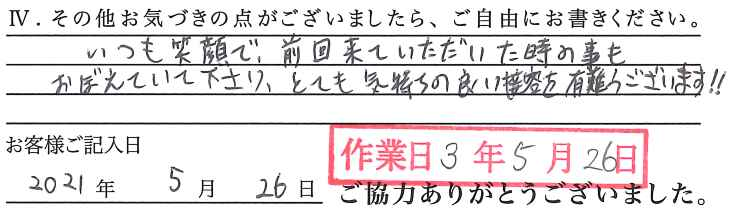 Ⅳ. その他お気づきの点がございましたら、ご自由にお書きください。
いつも笑顔で、前回来ていただいた時の事も
おぼえていて下さり、とても気持ちの良い接客を有難うございます!!
お客様ご記入日
作業日 3 年 5 月 26 日
2021 年 5 月 26 日
ご協力ありがとうございました。